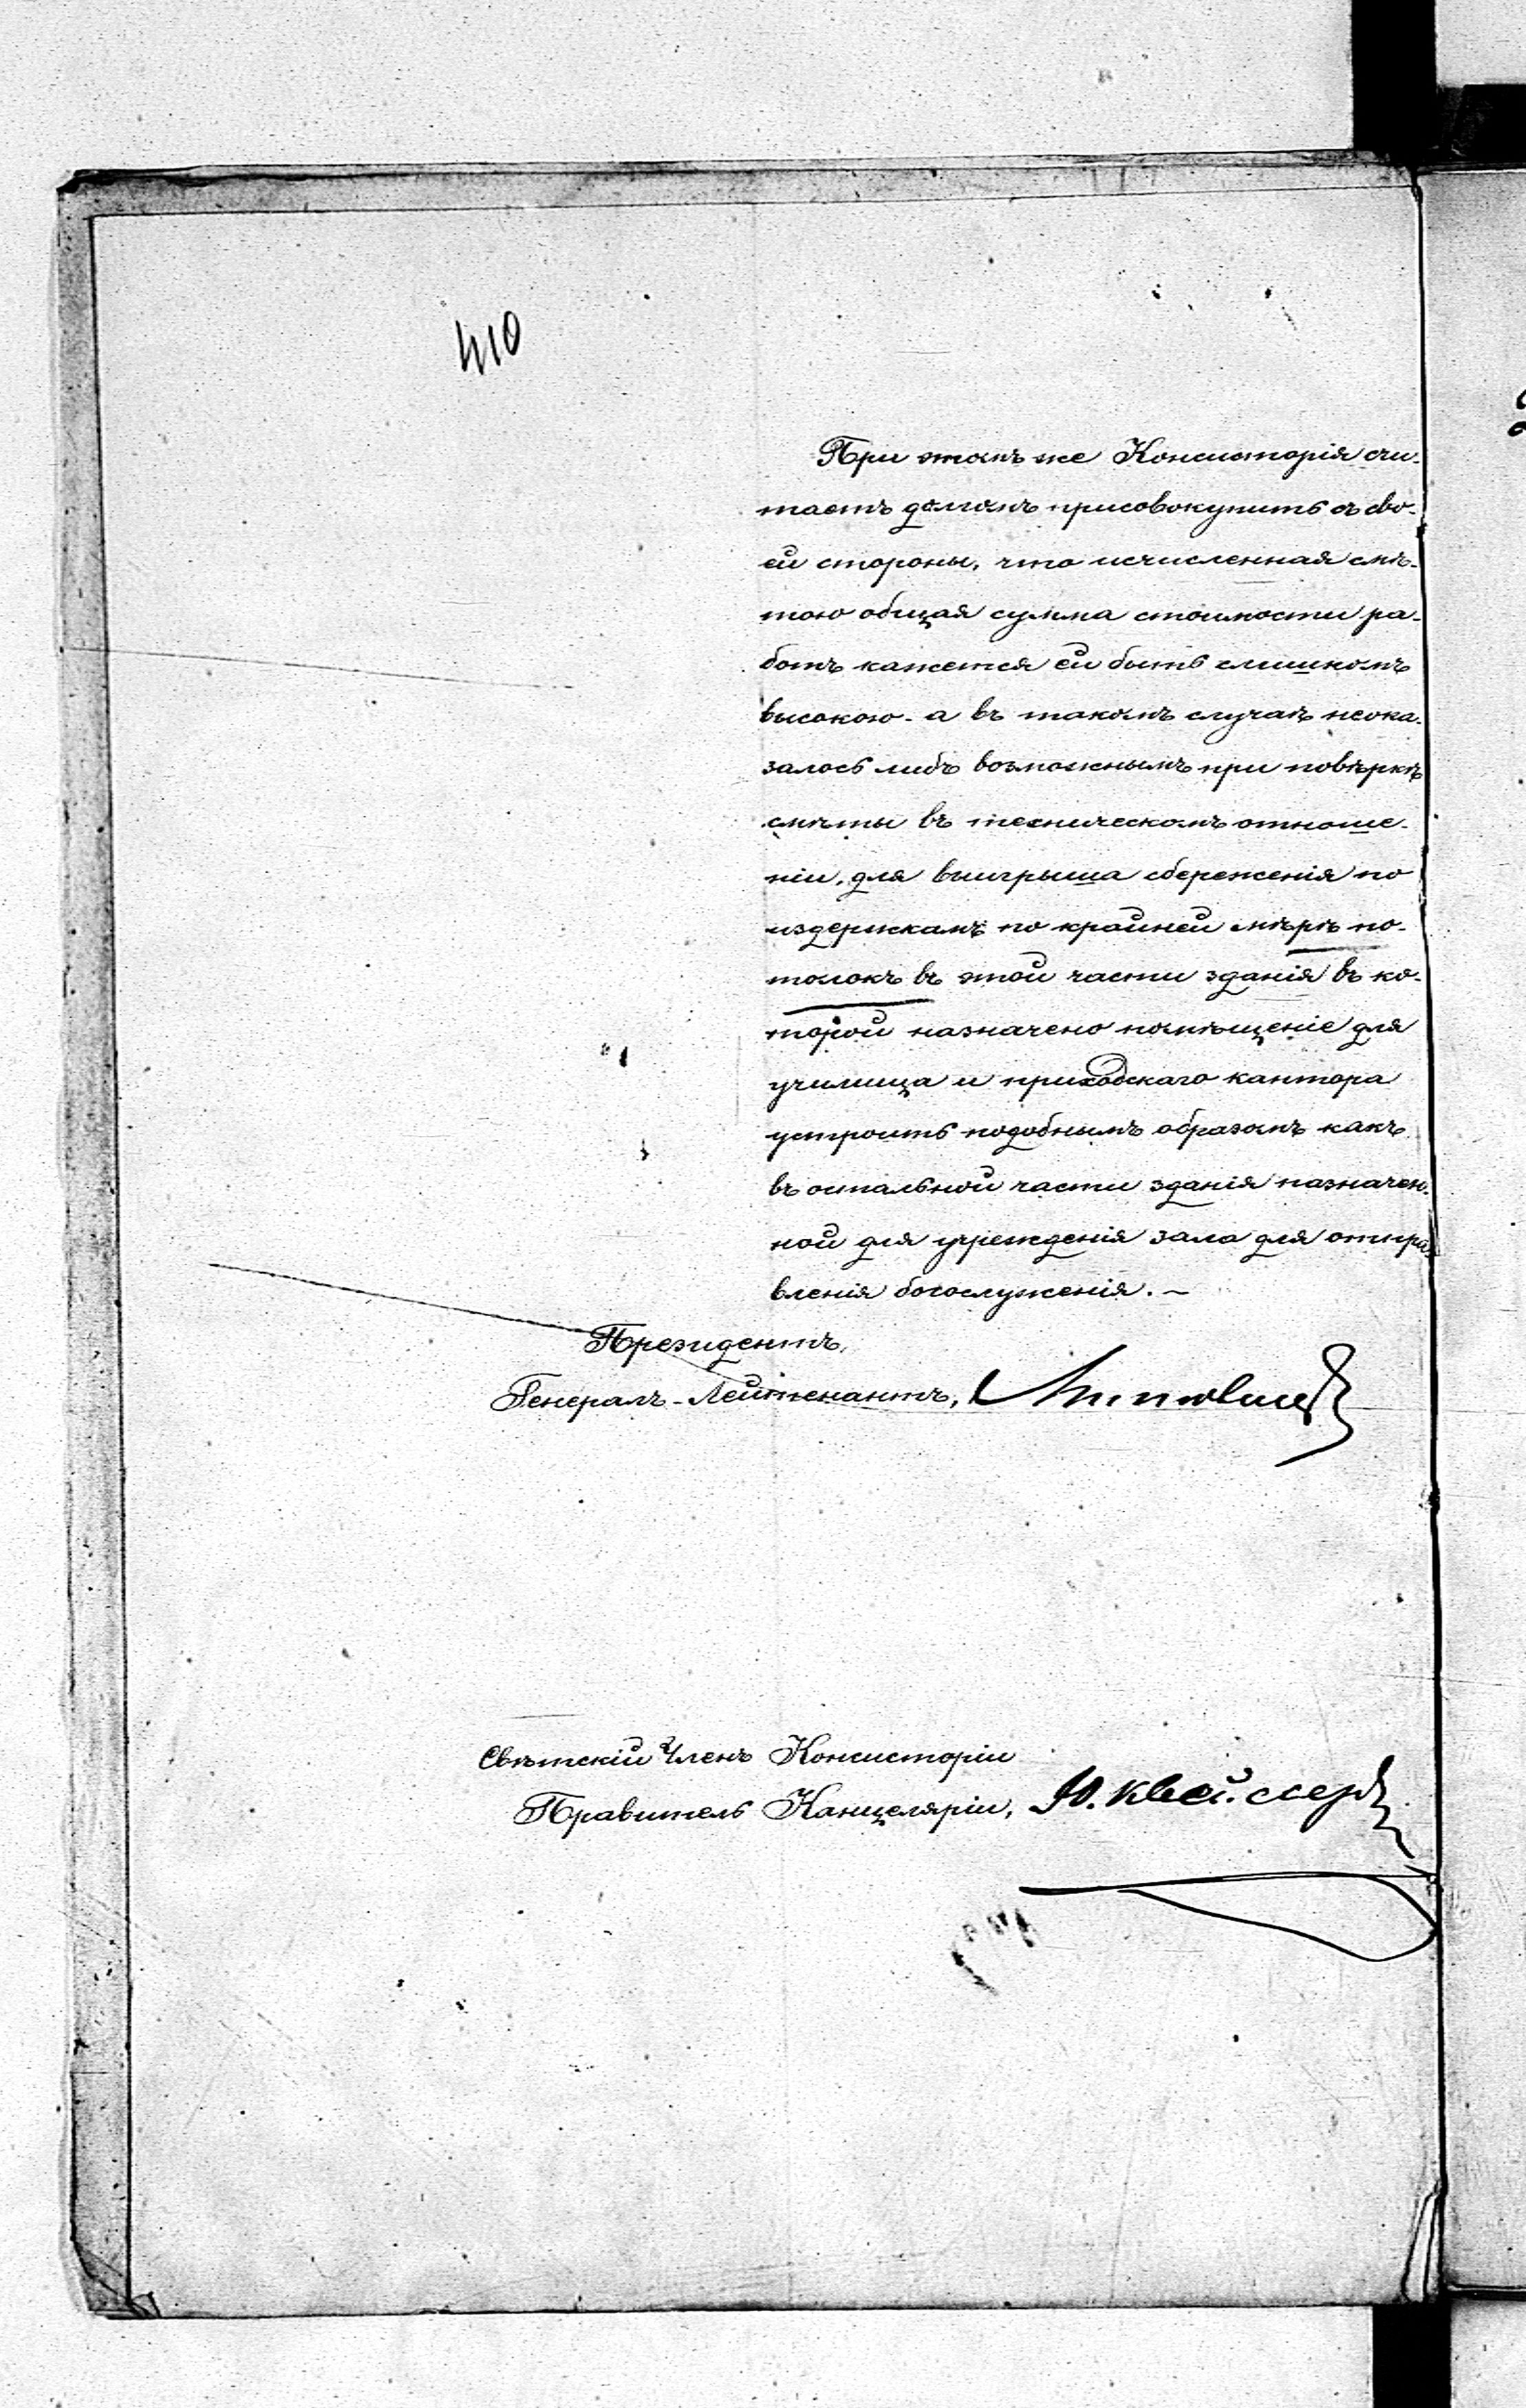 410
При этомъ же Консисторія счи-
таетъ долгомъ присовокупить съ сво-
ей стороны, что исчисленная смѣ-
тою общая сумма стоимости ра-
ботъ кажется ей быть слишкомъ
высокою - а въ такомъ случаѣ неока-
залось либъ возможнымъ при повѣркѣ
смѣты въ техническомъ отноше-
ніи, для выигрыша сбереженія по
издержкамъ по крайней мѣрѣ по-
толокъ въ этой части зданія въ ко-
торой назначено помѣщеніе для
училища и приходскаго кантора
устроить подобнымъ образомъ какъ
въ остальной части зданія назначен-
ной для учрежденія зала для отпра-
вленія богослуженія. ~
Президентъ,
Генералъ-Лейтенантъ,
Свѣтскій Членъ Консисторіи
Правитель Канцеляріи, Ю.